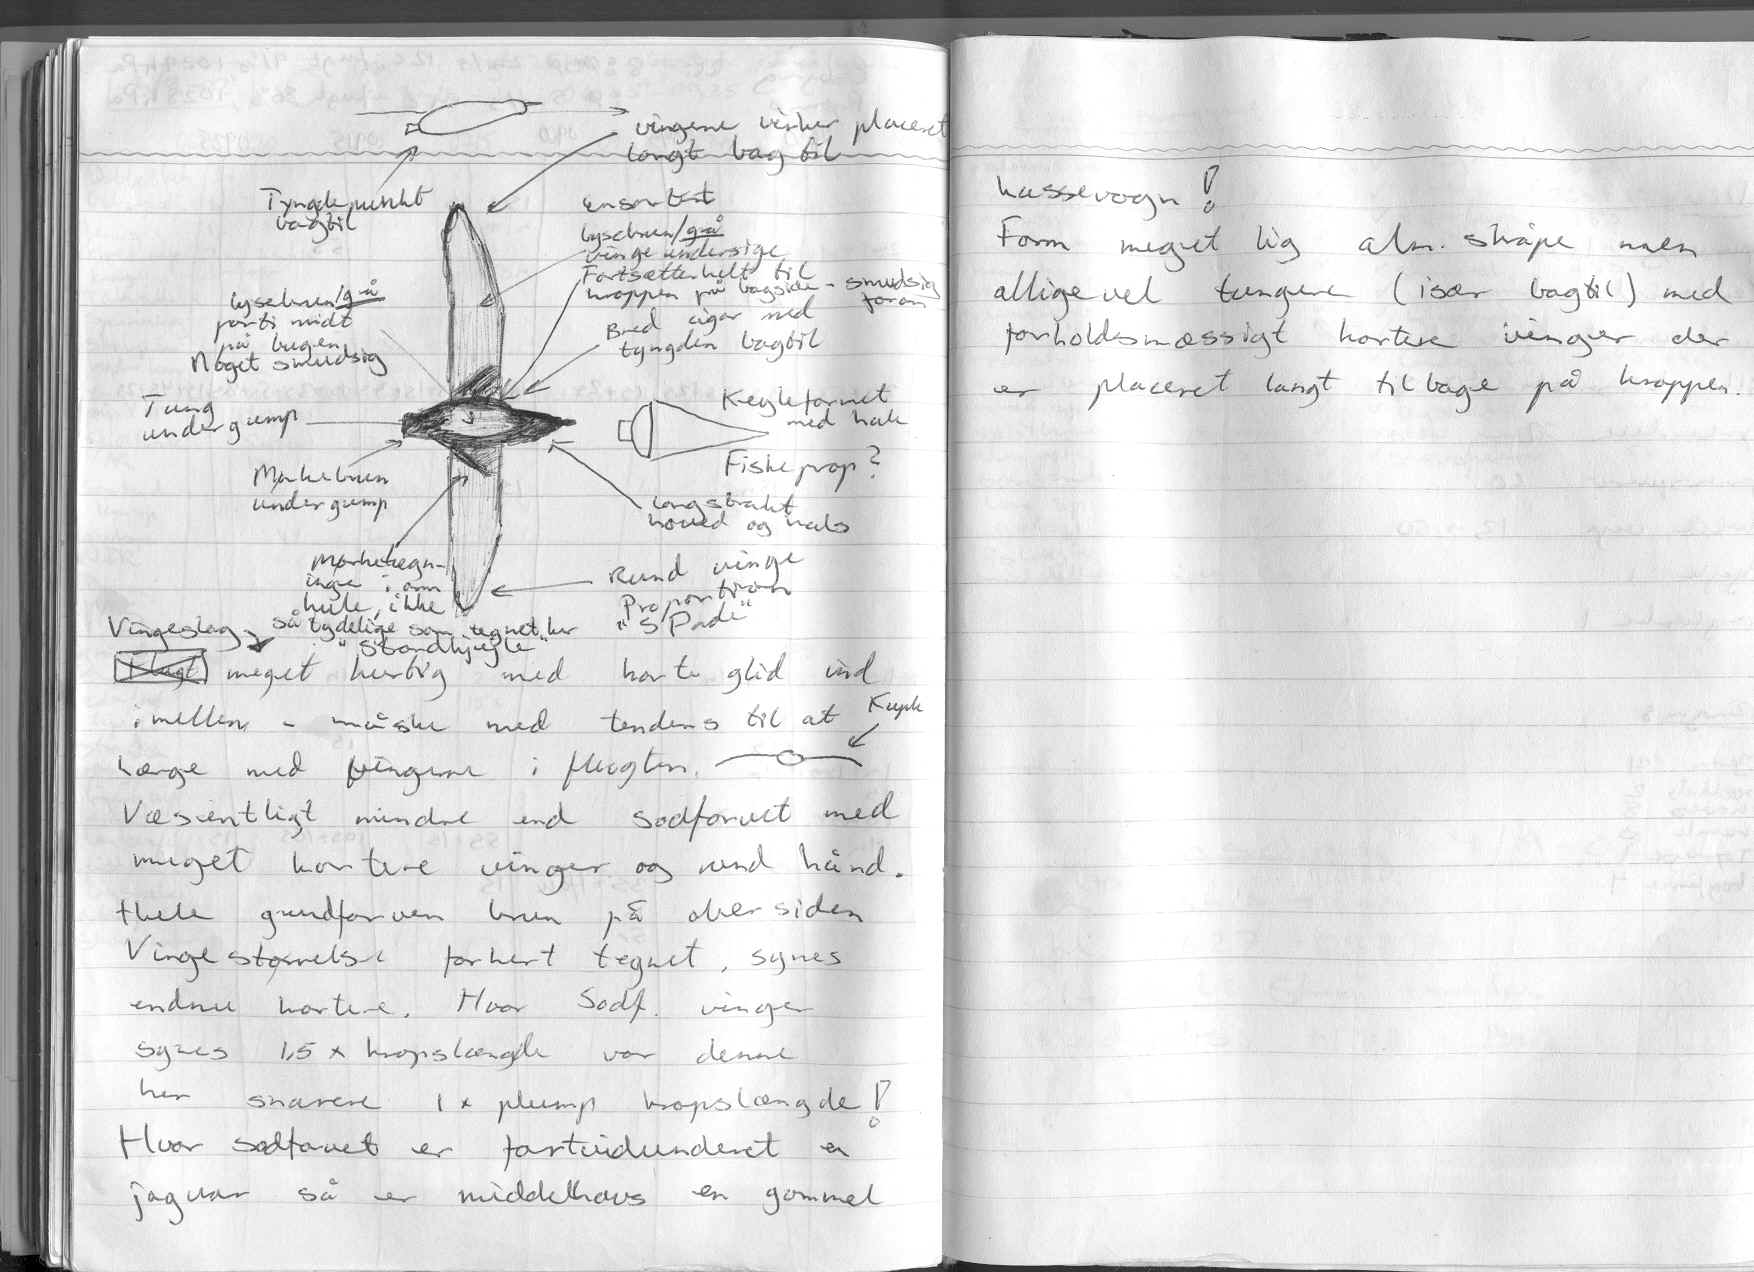 vingerne virker placeret
langt bagtil
Tyngdepunkt
bagtil
ensartet
lysebrun/grå
vinge underside
Fortsætter helt til
kroppen på bagside - smudsig
foran
lysebrun/grå
parti midt
på bugen
Noget smudsig
Bred cigar med
tyngden bagtil
Tung
undergump
Kegleformet
med hale
Fiskeprop?
Mørkebrun
undergump
langstrakt
hoved og hals
Mørktegn-
inge i arm
hule, ikke
så tydelige som tegnet her
Rund vinge
Proportion
"Spade"
Vingeslag
meget hurtig med korte glid ind
imellem - måske med tendens til at
Kuple
hænge med vingerne i flugten.
Væsentligt mindre end sodfarvet med
meget kortere vinger og rund hånd.
Hele grundfarven brun på oversiden
Vingestørrelse forkert tegnet, synes
endnu kortere. Hvor Sodf. vinger
synes 1,5 x kropslængde var denne
her snarere 1 x plump kropslængde!
Hvor sodfarvet er fartvidunderet en
jaguar så er middelhavs en gammel
kassevogn!
Form meget lig alm. skråpe men
alligevel tungere (især bagtil) med
forholdsmæssigt kortere vinger der
er placeret langt tilbage på kroppen.